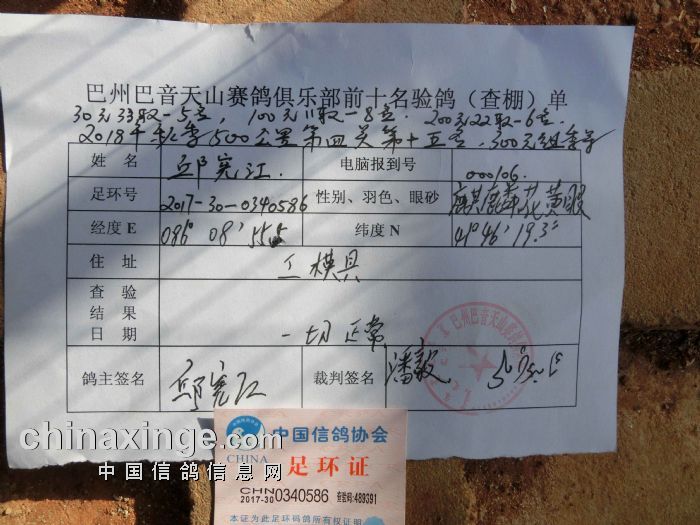 巴州巴音天山赛鸽俱乐部前十名验鸽（查棚）单
30元33取-5名, 100元11取-8名. 200元22取-6名.
2018年秋季500公里第四关第十五名. 300元组季军
姓 名 邱宪江. 电脑报到号 000106.
足环号 2017-30-0340586 性别、羽色、眼砂 麒麟花黄眼
经度E 086° 08' 纬度N 41° 46' 19.3"
住 址 模具
查 验
结 果
日 期 一切正常
鸽主签名 邱宪江 裁判签名 潘毅
巴州巴音天山赛鸽俱乐部
中国信鸽协会
CHINA 足环证
CHN
2017-30 0340586 查验码:489391
本证为此足环码鸽所有权证明
chinaxinge.com
中国信鸽信息网